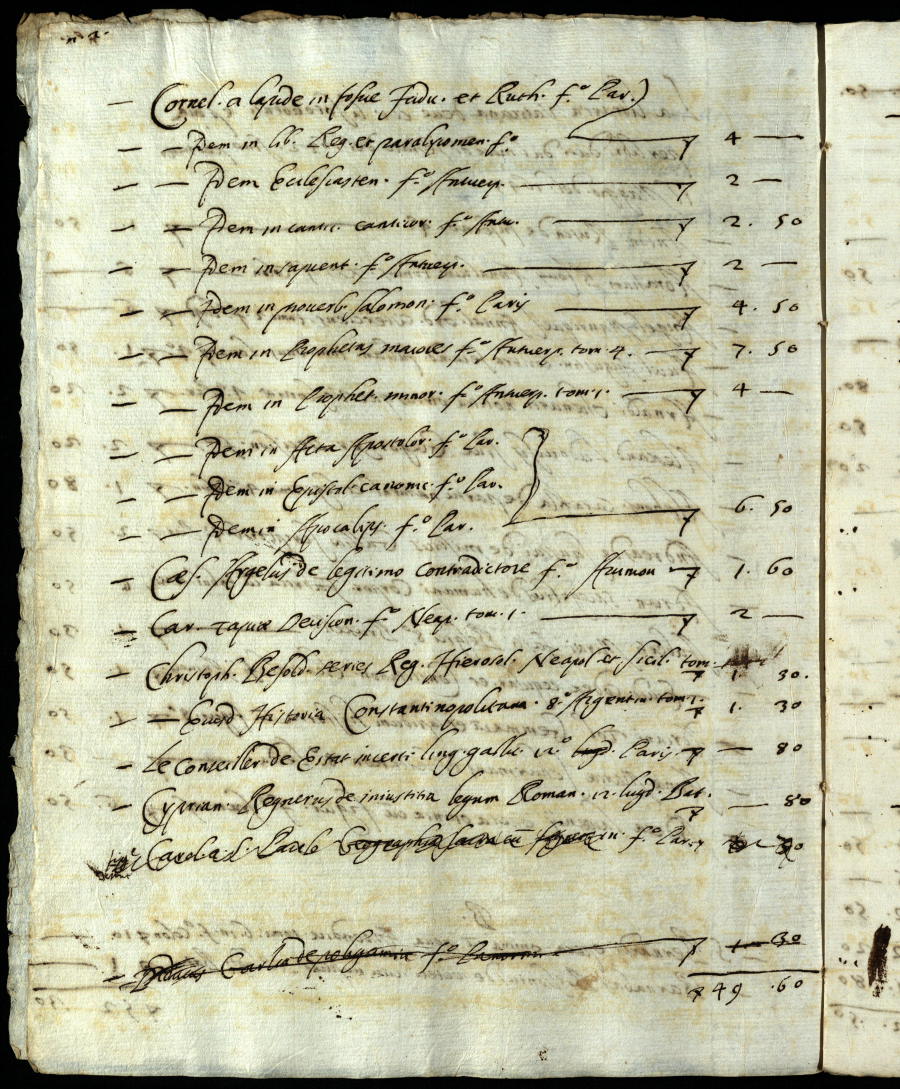 — Cornel. a lapide in Josue Judic. et Ruth. f.º Par.
— — Idem in lib. Reg. et paralipomen. f.º — 7 4 —
— — Idem Ecclesiasten. f.º Antuerp. — 7 2 —
— — Idem in cantic. canticor. f.º Antu. — 7 2. 50
— — Idem in sapient. f.º Antuerp. — 7 2 —
— — Idem in proverb. salomon. f.º Paris — 7 4. 50
— — Idem in Prophetas maiores f.º Antuerp. tom. 4. — 7 7. 50
— — Idem in Prophet. minor. f.º Antuerp. tom. 1. — 7 4 —
— — Idem in Acta Apostolor. f.º Par.
— — Idem in Epistol. canonic. f.º Par.
— — Idem in Apocalips. f.º Par. — 7 6. 50
— Cæs. Argelus de legitimo contradictore f.º — 7 1. 60
— Car. Tapiæ Decision. f.º Neap. tom. 1. — 7 2 —
— Christoph. Besold. series Reg. Hierosol. Neapol. et Sicil. tom. 7 1. 30.
— — Eiusd. Historia Constantinopolitana. 8.º Argentin. tom. 1. 7 1. 30
— Le Conseiller de Estat incerti ling. gallic. 12.º Paris. 7 — 80
— Cyprian. Regnerus de iniustitia legum Roman. 12. lugd. Bat. 7 — 80
Carola f.º Par. 7
— Carlia de polygamia f.º 7 1 — 30
7 49 . 60